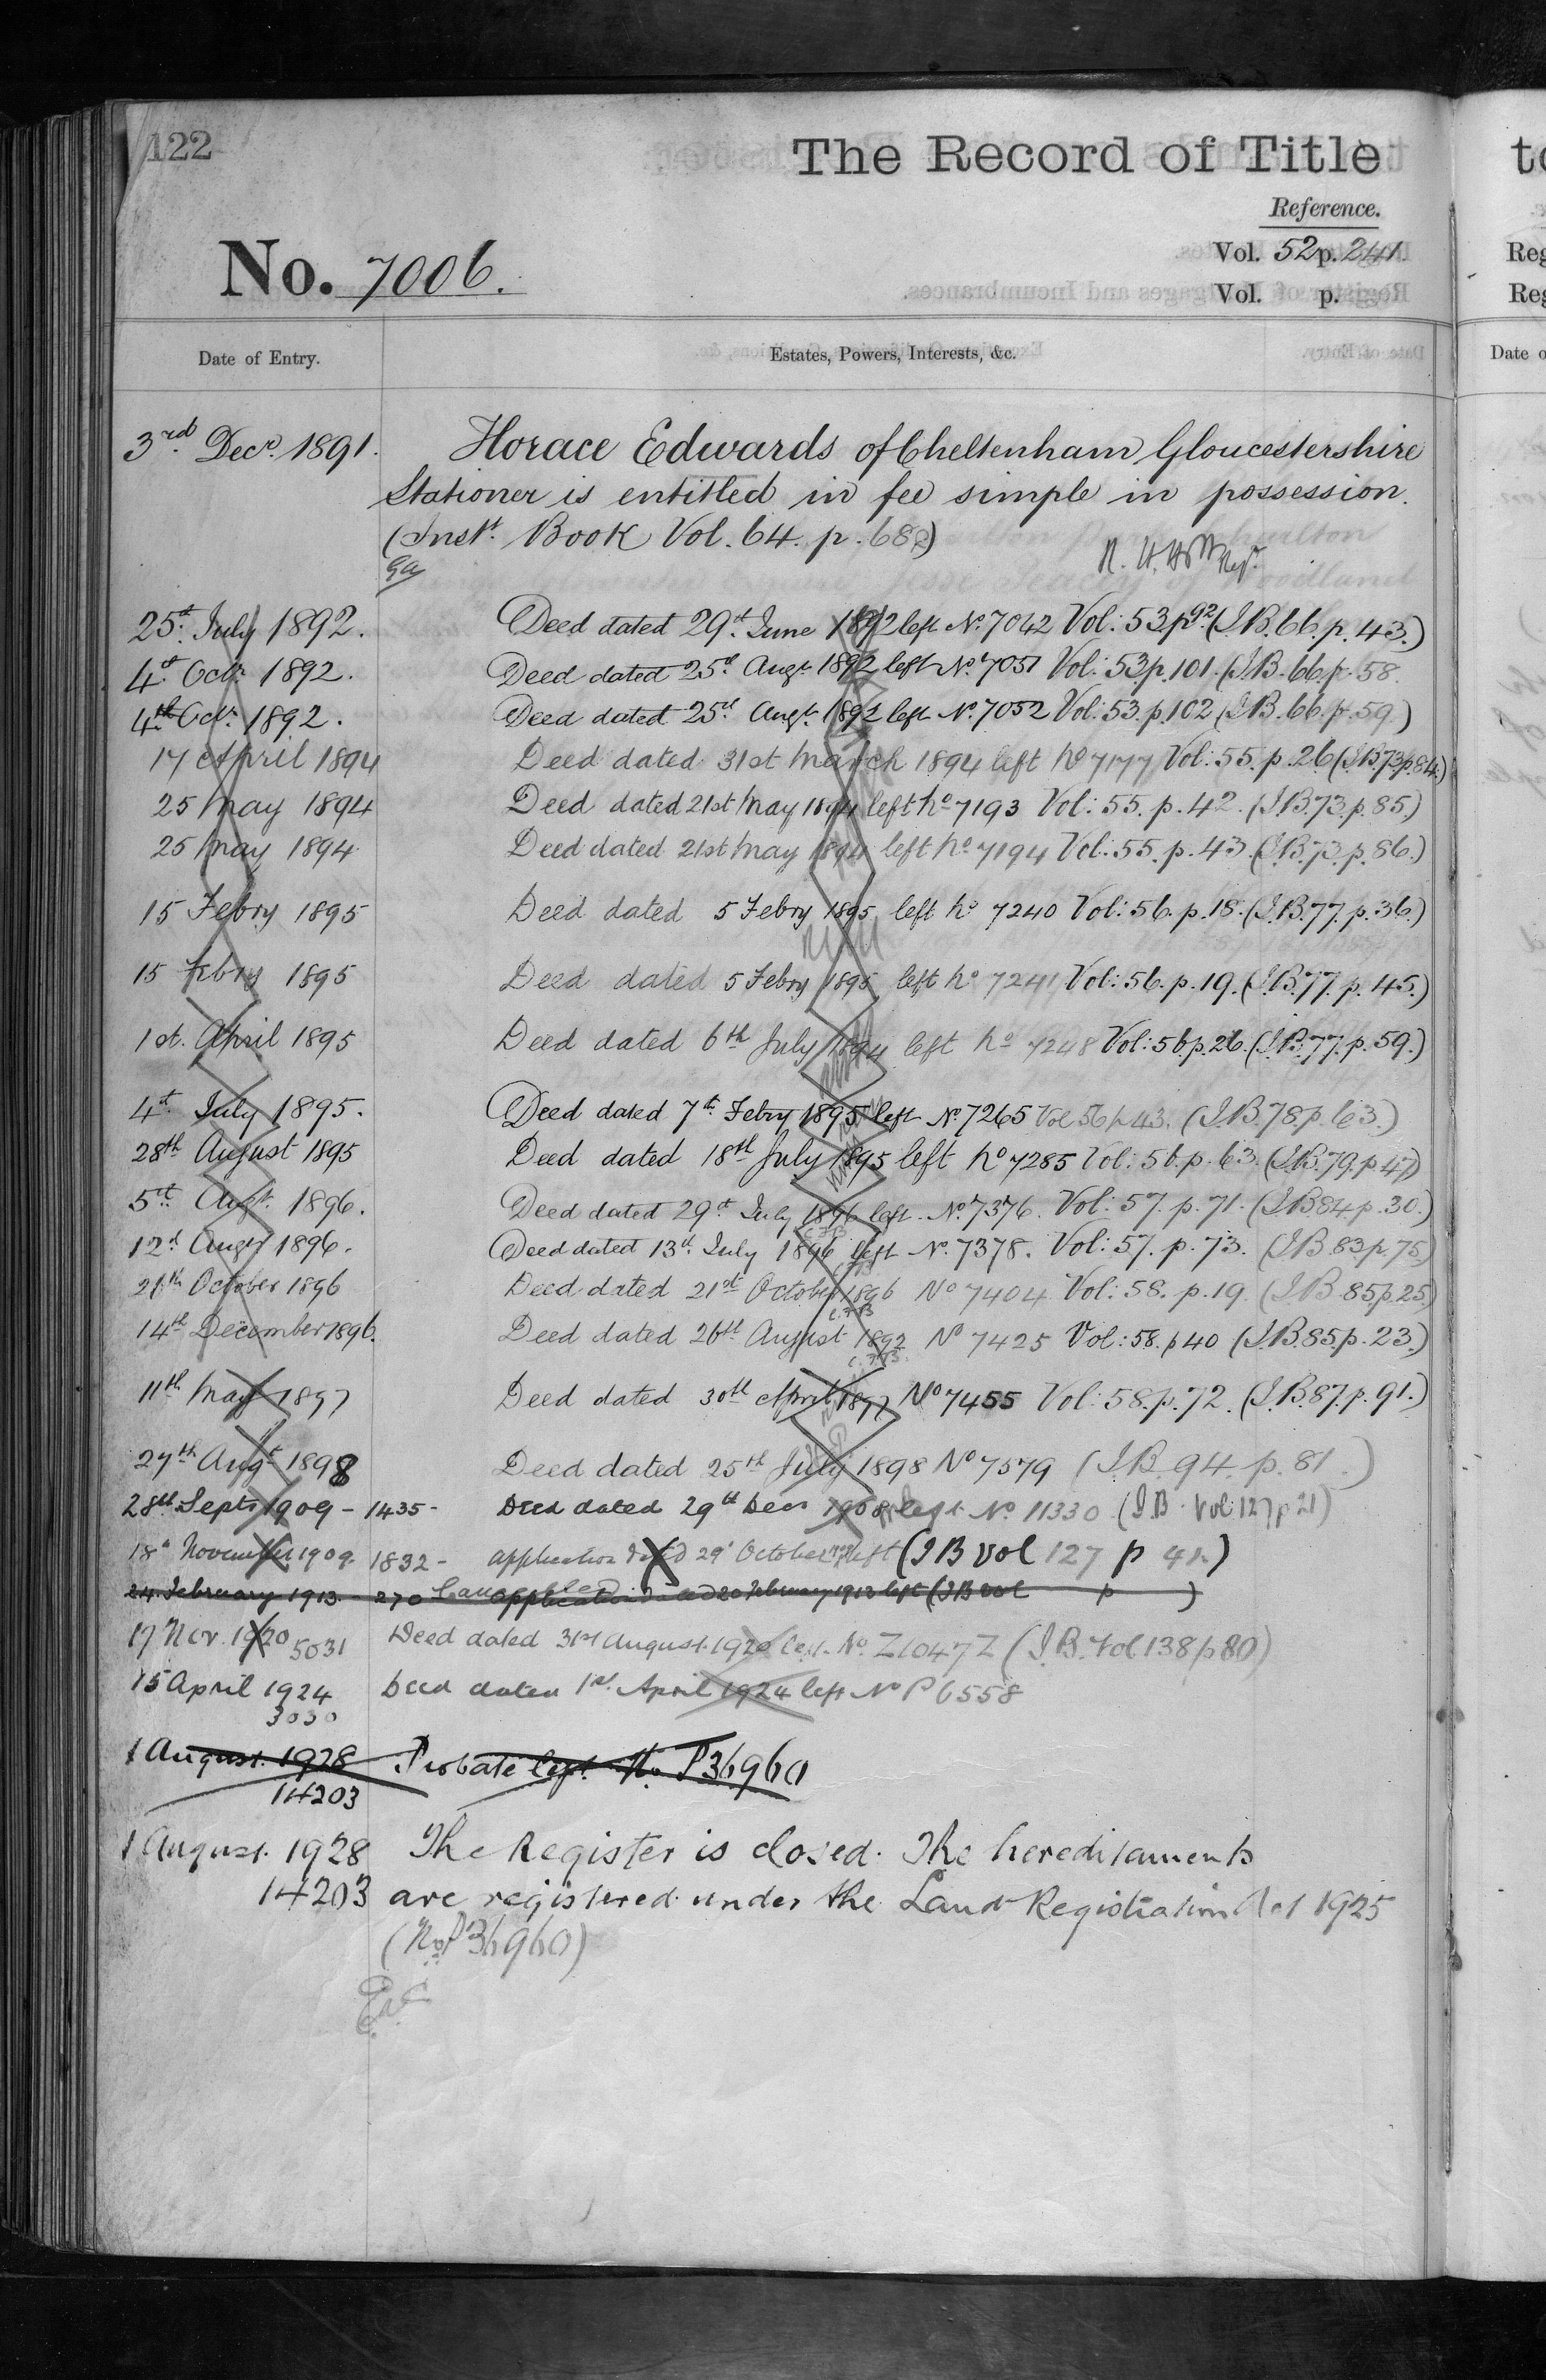 122
The Record of Title
Reference.
No. 7006.
Vol. 52 p. 241.
Vol. p.
Date of Entry. Estates, Powers, Interests, &c.
3rd. Decr. 1891. Horace Edwards of Cheltenham Gloucestershire
Stationer is entitled in fee simple in possession.
(Inst. Book Vol. 64. p. 682)
25th. July 1892. Deed dated 29th. June 1892 left No. 7042 Vol: 53.p 92 (I.B. 66. p. 43.)
4th. Octr. 1892. Deed dated 25th. Augt. 1892 left No. 7051 Vol: 53.p. 101. (I.B. 66.p. 58.
4th Octr. 1892. Deed dated 25th. Augt. 1892 left No. 7052 Vol: 53.p. 102 (I.B. 66.p. 59.)
17 April 1894 Deed dated 31st March 1894 left No 7177 Vol: 55. p. 26 (I.B. 73.p. 84.)
25 May 1894 Deed dated 21st May 1894 left No 7193 Vol: 55. p. 42. (I.B. 73. p. 85.)
25 May 1894 Deed dated 21st May 1894 left No. 7194 Vol: 55. p. 43. (I.B. 73. p. 86.)
15 Febry 1895 Deed dated 5 Febry 1895 left No 7240 Vol: 56. p. 18. (I.B. 77. p. 36.)
15 Febry 1895 Deed dated 5 Febry 1895 left No 7241 Vol: 56. p. 19. (I.B. 77. p. 45.)
1st. April 1895 Deed dated 6th July 1894 left No 7248 Vol: 56 p. 26. (I.B. 77. p. 59.)
4th. July 1895. Deed dated 7th. Febry 1895 left No. 7265 Vol 56 p 43. (I.B. 78. p. 63.)
28th August 1895 Deed dated 18th July 1895 left No 7285 Vol: 56. p. 63. (I.B. 79. p. 47)
5th. Augt. 1896. Deed dated 29th. July 1896 left No. 7376. Vol: 57. p. 71. (I.B 84 p. 30.)
12th Augt 1896. Deed dated 13th. July 1896 left No. 7378. Vol: 57. p. 73. (I.B. 83 p. 75)
October 1896 Deed dated 21st October 1896 No 7404 Vol: 58. p. 19. (I.B. 85.p. 25.)
14th December 1896. Deed dated 26th August 1892 No 7425 Vol: 58. p 40 (I.B. 85. p. 23.)
11th May 1897 Deed dated 30th April 1897 No 7455 Vol: 58. p. 72. (I.B. 87. p. 91.)
27th Augt 1898 Deed dated 25th July 1898 No 7579 (I.B. 94. p. 81.)
28th Septr 1909 - 1435 - Deed dated 29th Decr 1908 left No 11330 (I.B. Vol: 127 p 21)
18th November 1909. 1832 - application dated 29th October left (I B vol 127 p 41.)
24. February 1913. - 270 Cancelled application dated 20 February 1913 left (I B vol p )
17 Nov. 1920 5031 Deed dated 31st August 1920 left No. Z1047Z (I.B. Vol 138 p 80)
15 April 1924 Deed dated 1st. April 1924 left No P6558
3030
1 August. 1928 Probate left No P36960
14203
1 August. 1928 The Register is closed. The hereditaments
14203 are registered under the Land Registration Act 1925
(No. P36960)